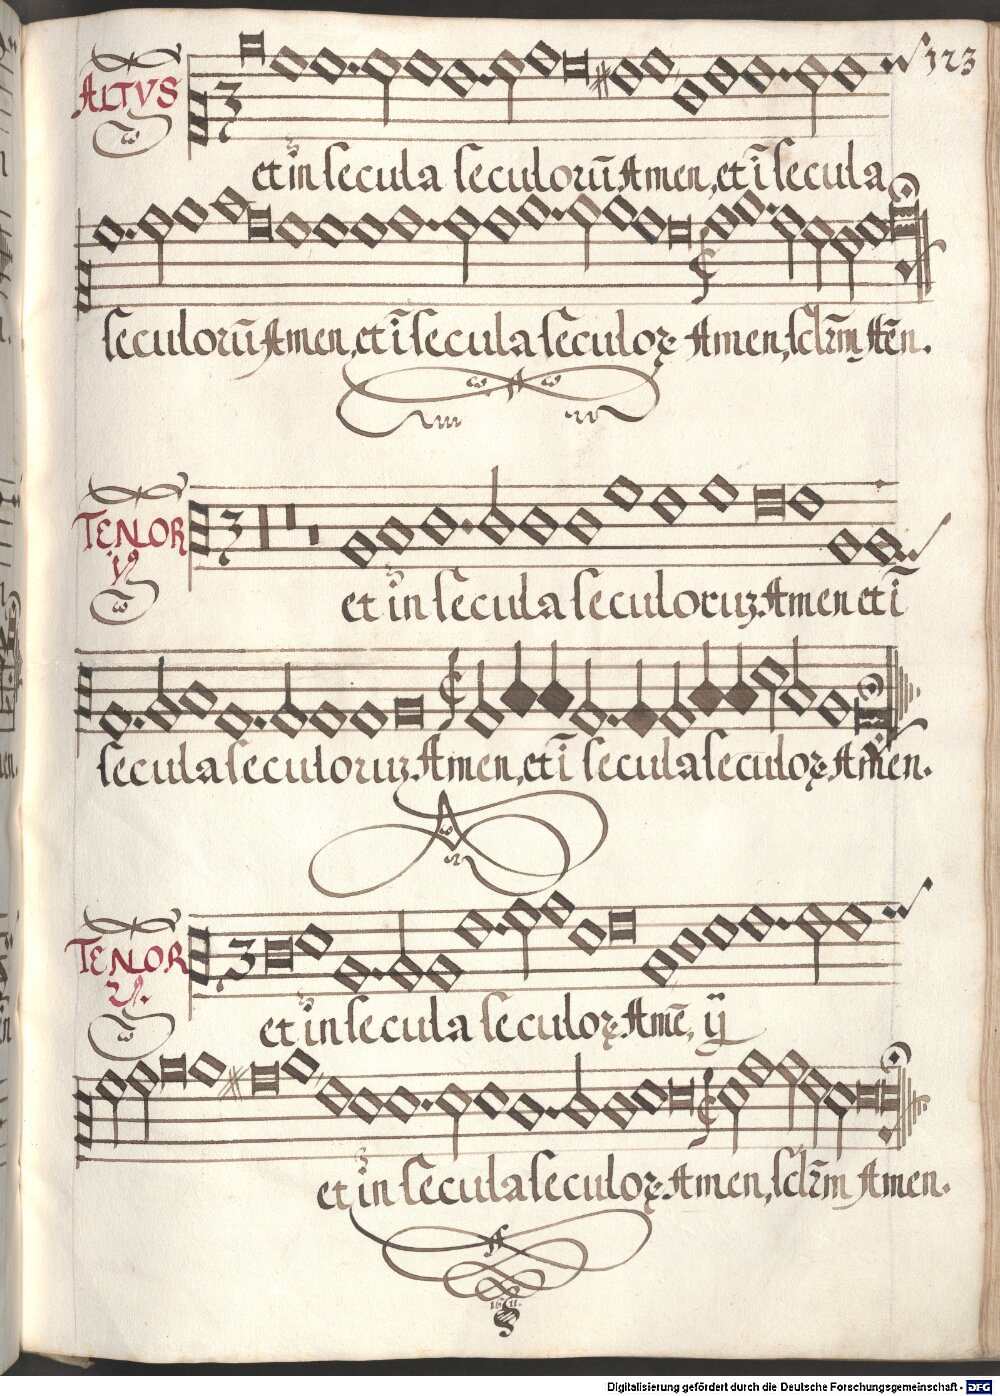 123
ALTVS
et in secula seculorū Amen, et ī secula
seculorū Amen, et ī secula seculoꝝ Amen, sclrm̄ Amē̄n.
TENOR
et in secula seculoruz Amen et ī
secula seculoruz Amen, et ī secula seculoꝝ Amen.
TENOR
2.
et in secula seculoꝝ Amē, ij
et in secula seculoꝝ Amen, sclrm̄ Amen.
1611.
Digitalisierung gefördert durch die Deutsche Forschungsgemeinschaft - DFG